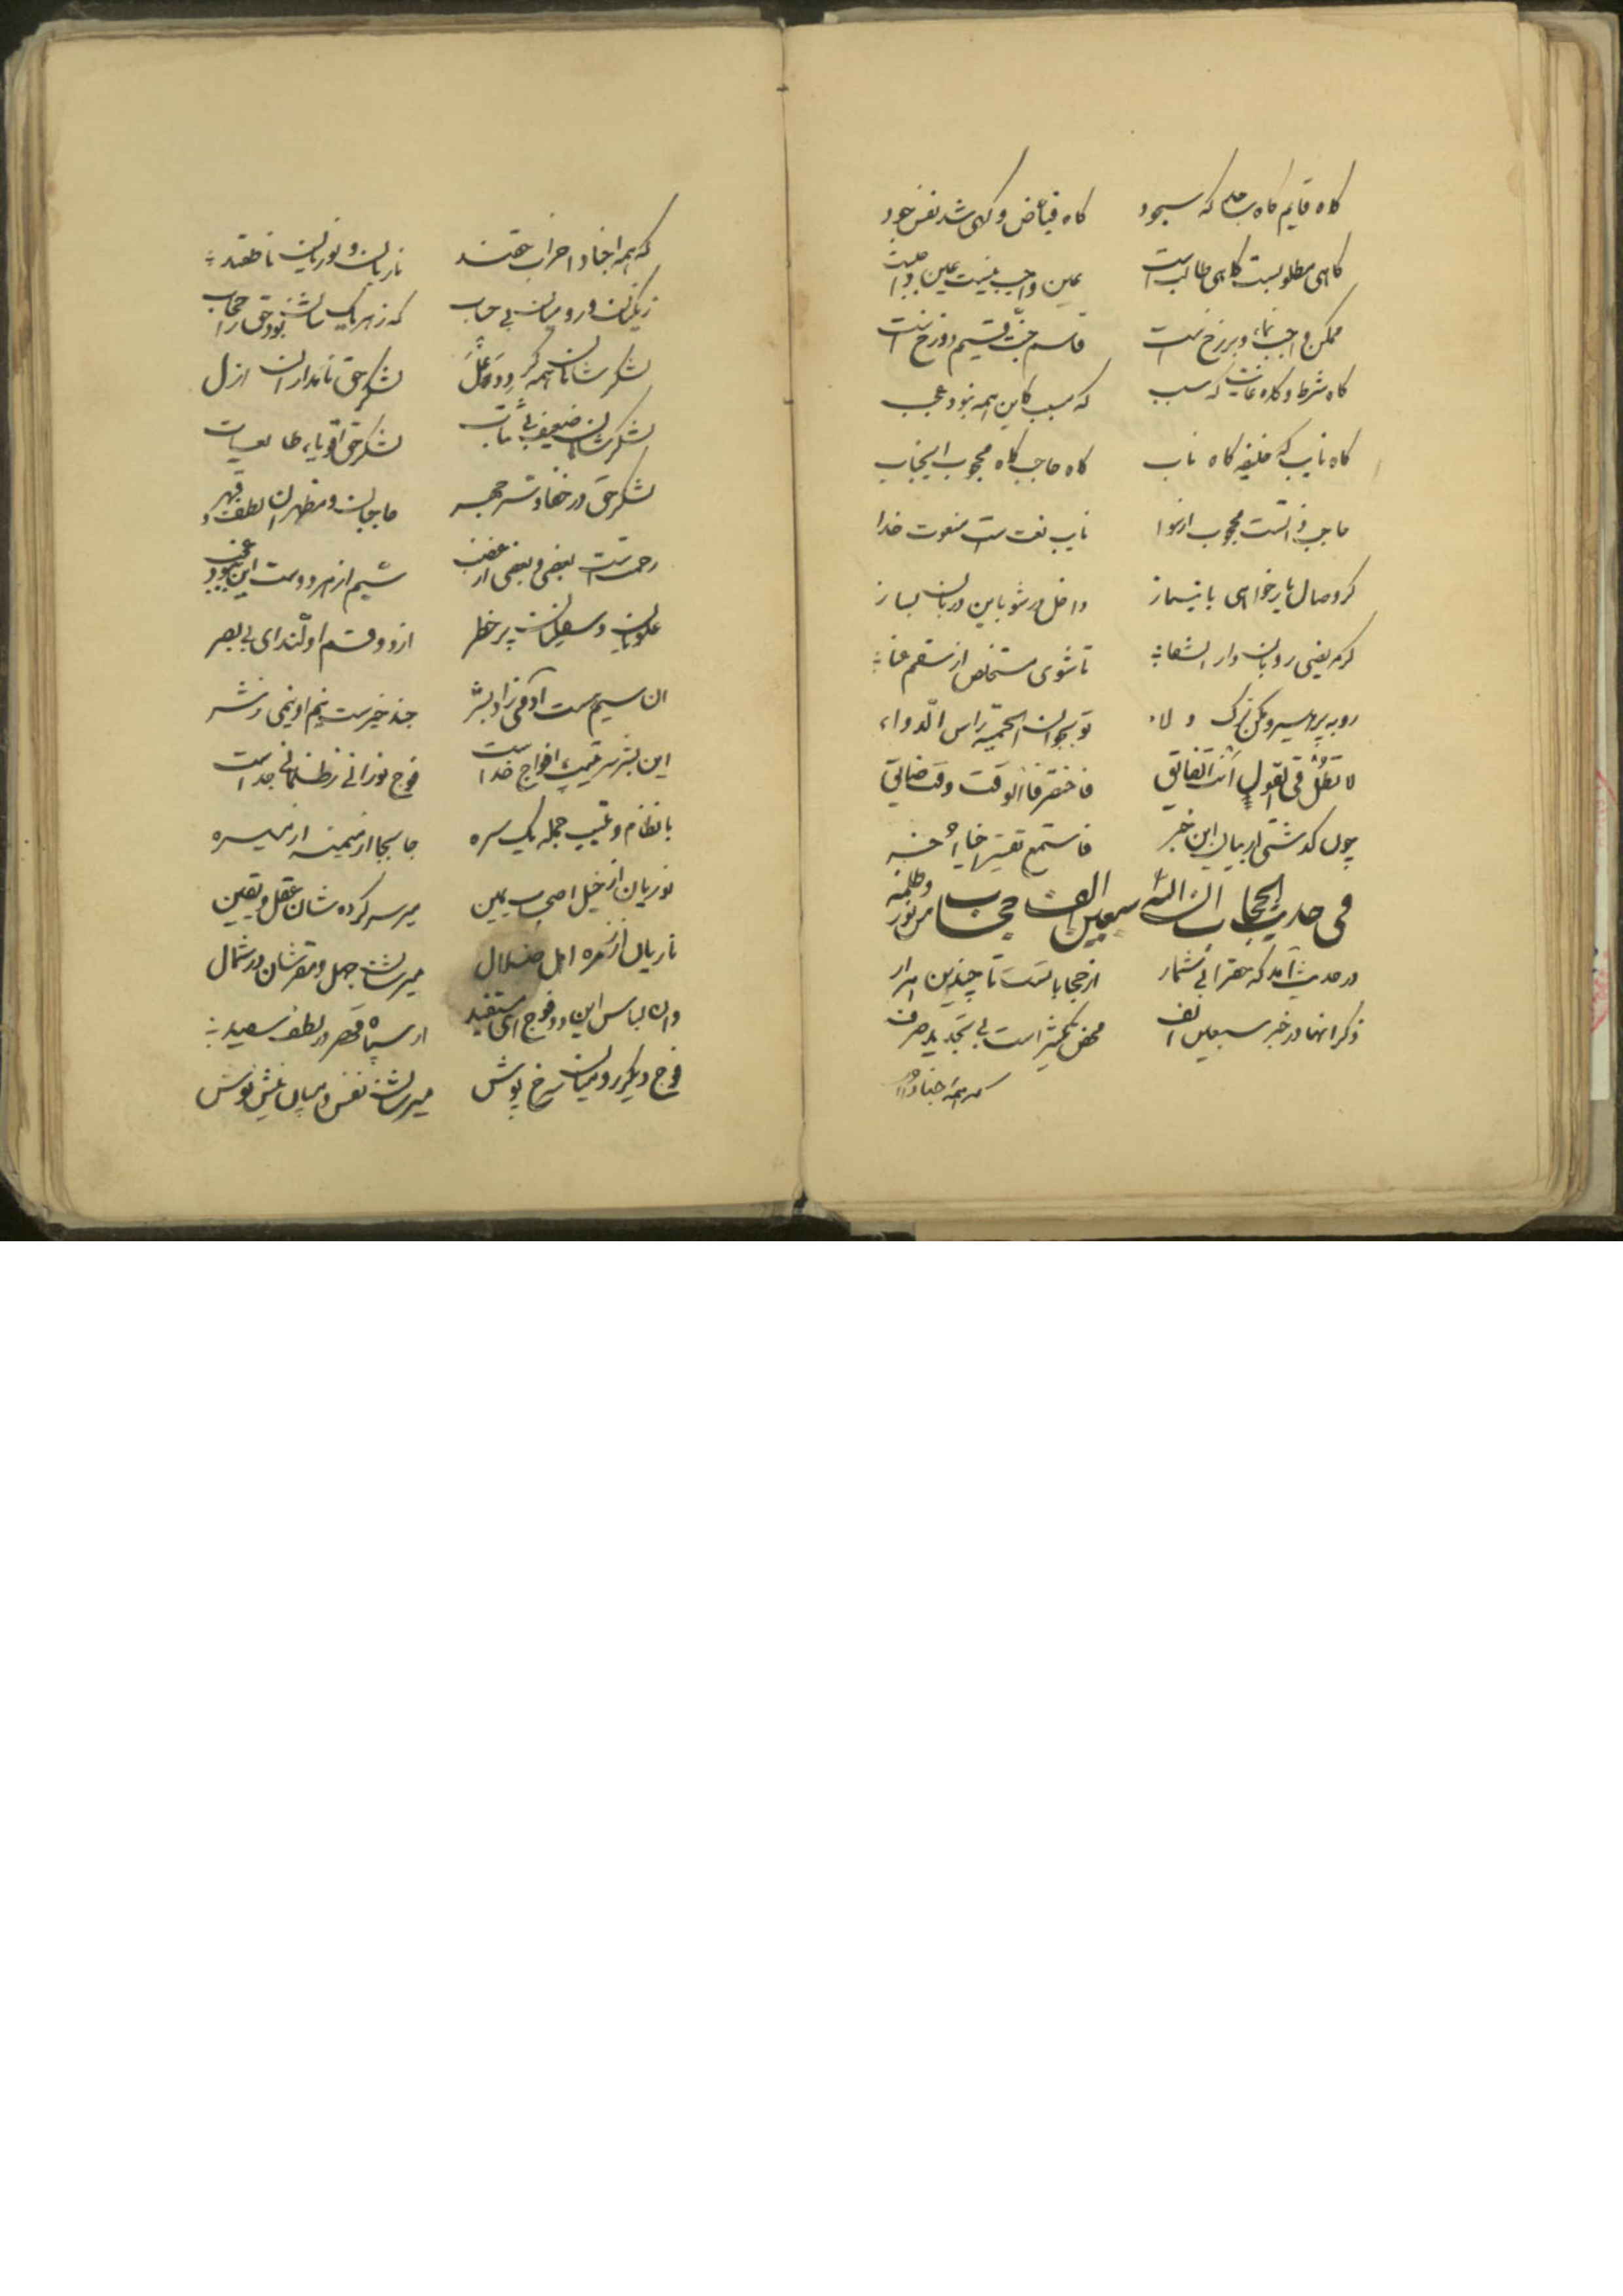 گاه قایم گاه ساجد گه سجود گاه فیاض و گهی شد نفس جود
گاهی مطلوبست گاهی طالب است عین واجب نیست عین واجب است
ممکن واجب نما و برزخ است قاسم جنت قسیم دوزخ است
گاه شرط و گاه غایت گه سبب که سبب کاین همه نبود عجب
گاه نایب گه خلیفه گاه باب گاه حاجب گاه محجوب الحجاب
حاجب ذاتست محجوب از سوا نایب نعت است منعوت خدا
گر وصال یار خواهی با نیاز داخل در شو باین دربان بساز
گر مریضی رو بان دار الشفا تا شوی مستخلص از سقم عنا
رو به پرهیز و مکن ترک دلا تو بخوان الحمیة راس الدواء
لا تطل فی القول انت الفایق فاختصر فالوقت وقت ضایق
چون گذشتی از بیان این خبر فاستمع تفسیر اخبار اخر
فی حدیث الحجاب ان الله سبعین الف حجاب من نور وظلمة
در حدیث آمد که حق را بی شمار از حجابا تست تا چندین هزار
ذکر انها در خبر سبعین الف محض تکثیر است بی تجدید صرف
که همه اجناد
که همه اجناد و احزاب حقند ناریان و نوریان ناطقند
زنگیان و رومیان بی حساب که ز هر یک شان بود حق را حجاب
لشکر شاهان همه گرد و دغل لشکر حق نامداران ازل
لشکر شاهان ضعیف بی ثبات لشکر حق اقویاء طالعیات
لشکر حق در خفا و در جهر حاجبان و مظهران لطف و قهر
رحمت است بعضی و بعضی از غضب سیم از هر دوست این نبود عجب
علویان و سفلیان پر خطر از دو قسم اولند ای بی بصر
ان سیم هست آدمی زاد بشر جند خیرست نیم او نیمی ز شر
این بشر سرتیب افواج خداست فوج نورانی ز ظلمانی جداست
با نظام و ترتیب جمله یک سره جابجا از میمنه از میسره
نوریان از خیل اصحاب یمین میر سر کرده شان عقل و یقین
ناریان از زمره اهل ضلال میرشان جهل و مقرشان در شمال
وان لباس این دو فوج ای مستفید از سپاه قهر و لطف سعید
فوج دیگر رومیان سرخ پوش میرشان نفس و میان نیش نوش